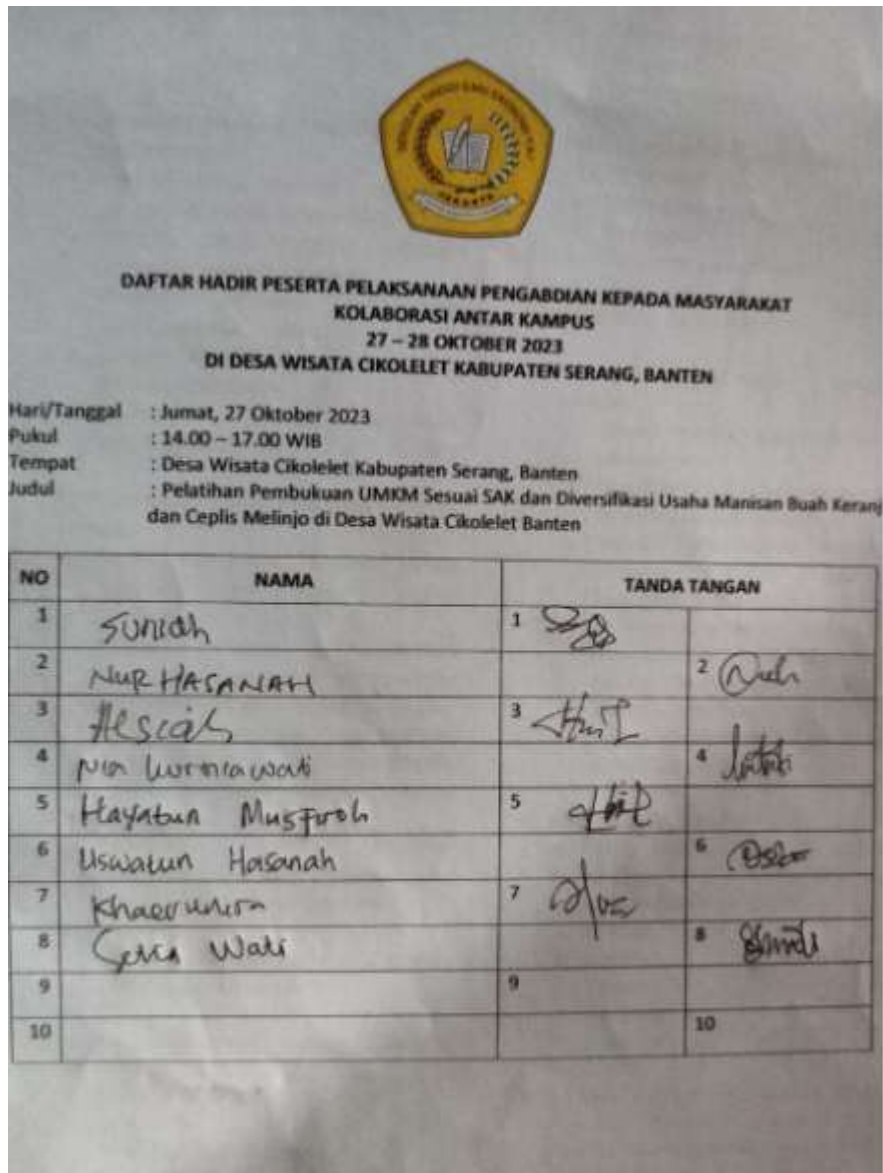 SEKOLAH TINGGI ILMU EKONOMI
JAKARTA
DAFTAR HADIR PESERTA PELAKSANAAN PENGABDIAN KEPADA MASYARAKAT
KOLABORASI ANTAR KAMPUS
27 – 28 OKTOBER 2023
DI DESA WISATA CIKOLELET KABUPATEN SERANG, BANTEN
Hari/Tanggal : Jumat, 27 Oktober 2023
Pukul : 14.00 – 17.00 WIB
Tempat : Desa Wisata Cikolelet Kabupaten Serang, Banten
Judul : Pelatihan Pembukuan UMKM Sesuai SAK dan Diversifikasi Usaha Manisan Buah Keranj
dan Ceplis Melinjo di Desa Wisata Cikolelet Banten
NO NAMA TANDA TANGAN
1 Suniah 1
2 NUR HASANAH 2
3 3
4 Nia kurniawati 4
5 Hayatun Musfiroh 5
6 Uswatun Hasanah 6
7 Khaerunisa 7
8 Wati 8
9 9
10 10